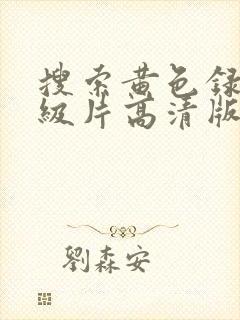 搜索黄色録
級片高清版
劉森安